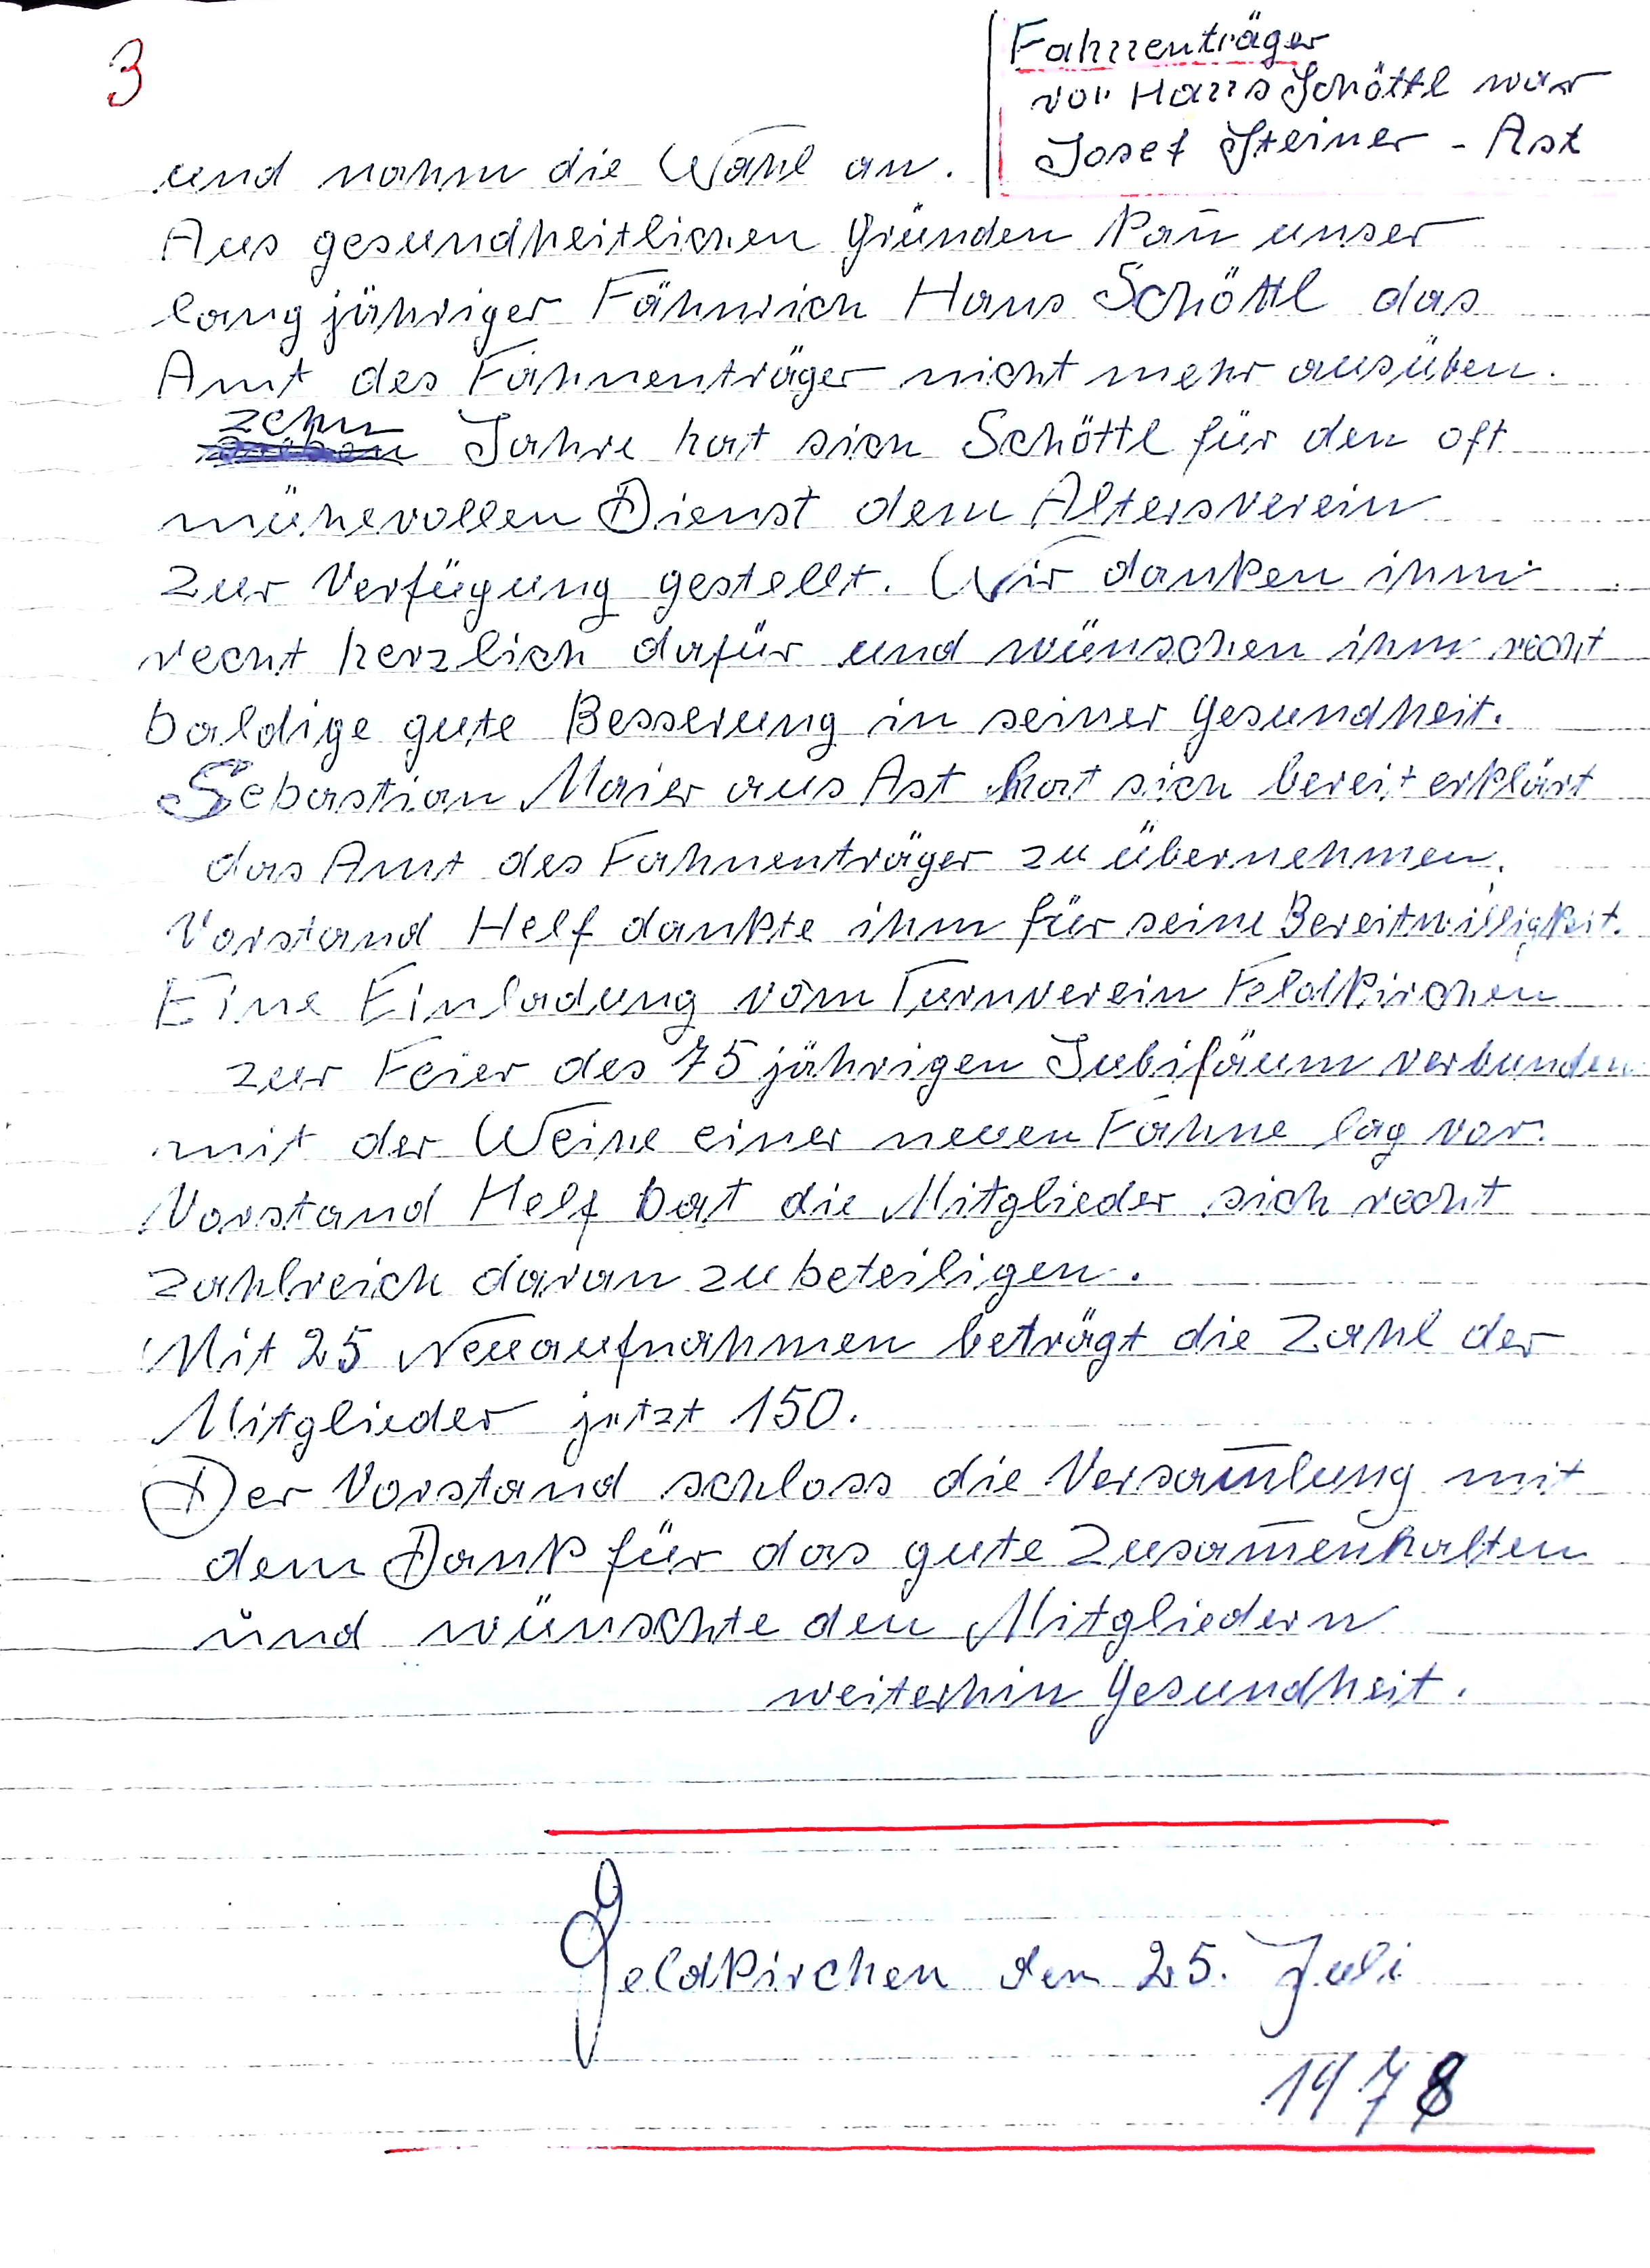 3
Fahnenträger
vor Hans Schöttl war
Josef Steiner - Ast
und nahm die Wahl an.
Aus gesundheitlichen Gründen kan̄ unser
langjähriger Fähnrich Hans Schöttl das
Amt des Fahnenträger nicht mehr ausüben.
zehn
Jahre hat sich Schöttl für den oft
mühevollen Dienst dem Altersverein
zur Verfügung gestellt. Wir danken ihm
recht herzlich dafür und wünschen ihm recht
baldige gute Besserung in seiner Gesundheit.
Sebastian Maier aus Ast hat sich bereit erklärt
das Amt des Fahnenträger zu übernehmen.
Vorstand Helf dankte ihm für seine Bereitwilligkeit.
Eine Einladung vom Turnverein Feldkirchen
zur Feier des 75 jährigen Jubiläum verbunden
mit der Weihe einer neuen Fahne lag vor.
Vorstand Helf bat die Mitglieder sich recht
zahlreich daran zu beteiligen.
Mit 25 Neuaufnahmen beträgt die Zahl der
Mitglieder jetzt 150.
Der Vorstand schloss die Versam̄lung mit
dem Dank für das gute Zusam̄enhalten
und wünschte den Mitgliedern
weiterhin Gesundheit.
Feldkirchen den 25. Juli
1978